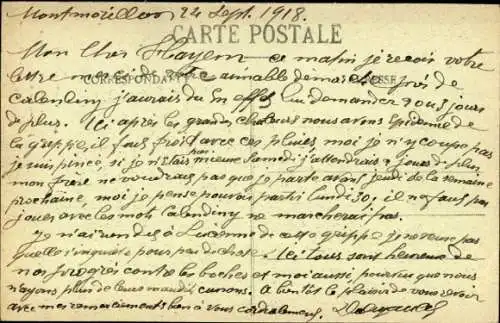 Montmorillon 24 Sept. 1918.
CARTE POSTALE
Mon Cher Hayem ce matin je reçois votre
lettre merci de votre aimable demarche près de
CORRESPONDANCE ADRESSE
Calendiny j'aurais du En effet lui demander 8 ous jours
de plus. Ici après les grandes chaleurs nous avons Epidemie de
la grippe, il fais froid avec ces pluies, moi je n'y coupe pas
je suis pincé, si je n'étais pas mieux Samedi j'attendrais 2 jours de plus
mon frère ne voudrais pas que je parte avant jeudi de la semaine
prochaine, moi je pense pouvoir partir lundi 30, il ne faus pas
jouer avec les mots Calendiny ne marcherais pas.
Je n'ai rendu à cette grippe je ne pas
quelle s'inquiète pour pas de chose. Ici tous sont heureux de
nos progrès contre les boches et moi aussi pourvu que nous
n'ayons plus de leurs maudit canons. A bientôt le plaisir de vous revoir
avec mes remerciements bien à vous cordialement.